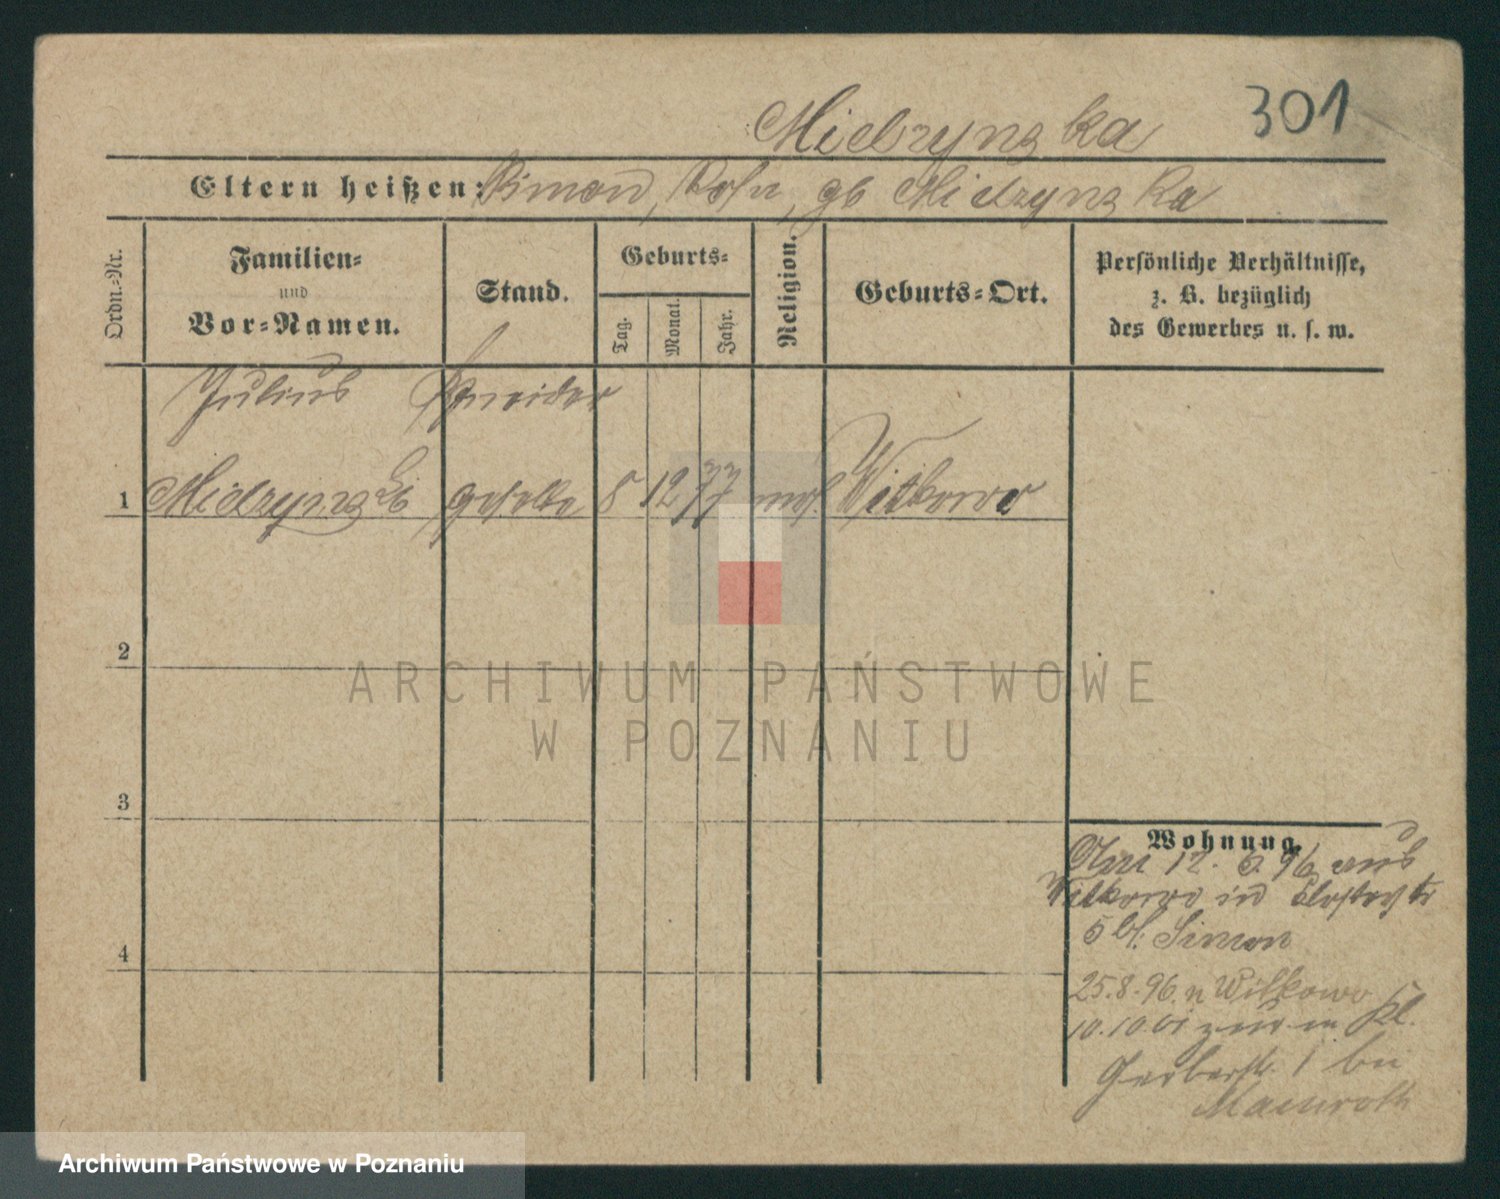 301
Miedzynska
Eltern heißen: Simon, Rosa, gb Miedzynska
Ordn.-Nr.
Familien-
und
Vor-Namen.
Stand.
Geburts-
Tag.
Monat.
Jahr.
Religion.
Geburts-Ort.
Persönliche Verhältnisse,
z. B. bezüglich
des Gewerbes u. s. w.
Julius Schneider
1 Miedzynski geselle 8 12 77 mos. Witkowo
2
ARCHIWUM PAŃSTWOWE
W POZNANIU
3
Wohnung.
12. 6. 96 aus
Witkowo in Klosterstr
5 bei Simon
4
25.8.96. n Witkowo
10.10 01 zur in Kl.
Gerberstr. 1 bei
Mamroth
Archiwum Państwowe w Poznaniu